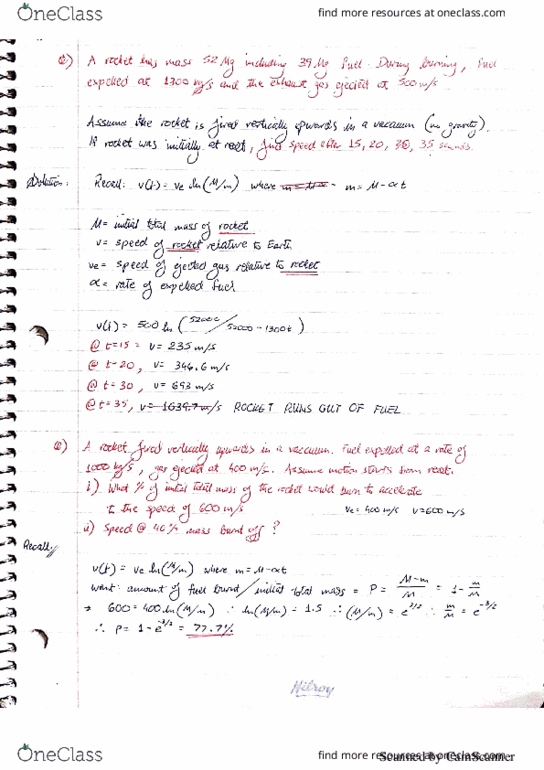 OneClass
find more resources at oneclass.com
Q) A rocket has mass 52 Mg including 39 Mg fuel. During burning, fuel
expelled at 1300 kg/s and the exhaust gas ejected at 500 m/s
Assume the rocket is fired vertically upwards in a vacuum (no gravity).
If rocket was initially at rest, find speed after 15, 20, 30, 35 seconds.
Solution: Recall: v(t) = ve ln(M/m) where m = M-αt
M = initial total mass of rocket
v = speed of rocket relative to Earth
ve = speed of ejected gas relative to rocket
α = rate of expelled fuel
v(t) = 500 ln (52000/52000-1300t)
@ t=15 = v= 235 m/s
@ t=20, v= 346.6 m/s
@ t=30, v= 693 m/s
@ t=35, v= 1039.7 m/s ROCKET RUNS OUT OF FUEL
Q) A rocket fired vertically upwards in a vacuum. Fuel expelled at a rate of
1000 kg/s, gas ejected at 400 m/s. Assume motion starts from rest.
i) What % of initial total mass of the rocket would burn to accelerate
to the speed of 600 m/s ve = 400 m/s v=600 m/s
ii) Speed @ 40% mass burnt off ?
Recall,
v(t) = ve ln(M/m) where m= M-αt
want: amount of fuel burnt/initial total mass = P = M-m/M = 1- m/M
→ 600 = 400 ln(M/m) ∴ ln(M/m) = 1.5 ∴ (M/m) = e^3/2 ∴ m/M = e^-3/2
∴ P= 1-e^-3/2 = 77.7%
Milroy
OneClass
find more resources at oneclass.com
Scanned by CamScanner